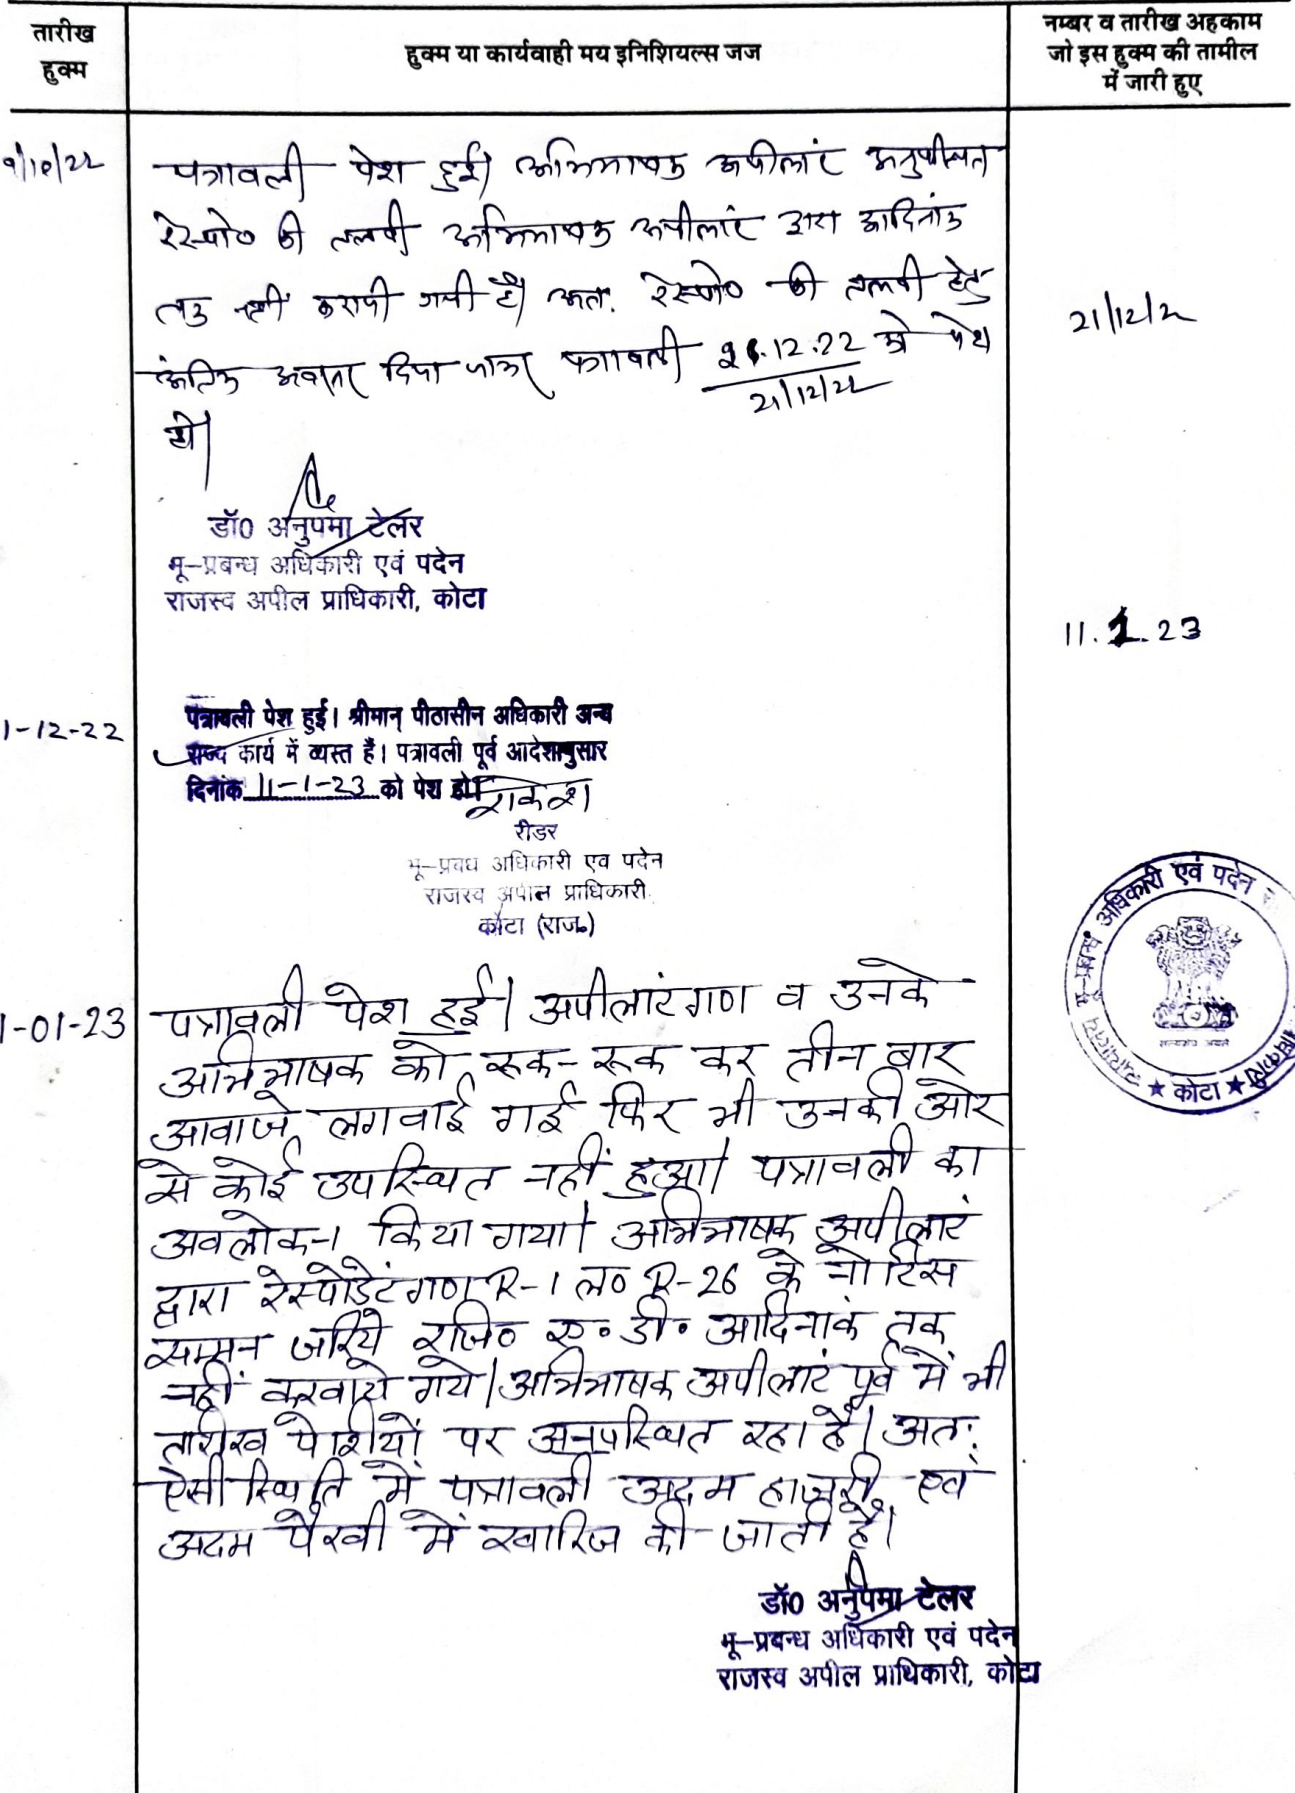 तारीख
हुक्म
हुक्म या कार्यवाही मय इनिशियल्स जज
नम्बर व तारीख अहकाम
जो इस हुक्म की तामील
में जारी हुए
पत्रावली पेश हुई। अभिभाषक अपीलांट अनुपस्थित
रेस्पो० की तलबी अभिभाषक अपीलांट द्वारा आदिनांक
तक नहीं करायी गयी है। अतः रेस्पो० की तलबी हेतु
अंतिम अवसर दिया जाकर पत्रावली 21.12.22 को पेश
21/12/22
हो।
21/12/22
डॉ0 अनुपमा टेलर
भू-प्रबन्ध अधिकारी एवं पदेन
राजस्व अपील प्राधिकारी, कोटा
11.1.23
1-12-22
पत्रावली पेश हुई। श्रीमान् पीठासीन अधिकारी अन्य
राज्य कार्य में व्यस्त है। पत्रावली पूर्व आदेशानुसार
दिनांक 11-1-23 को पेश हो।
राकेश
रीडर
भू-प्रबंध अधिकारी एवं पदेन
राजस्व अपील प्राधिकारी
कोटा (राज.)
न्यायालय भू-प्रबन्ध अधिकारी एवं पदेन
सत्यमेव जयते
★ कोटा ★
1-01-23
पत्रावली पेश हुई। अपीलांटगण व उनके
अभिभाषक को रूक-रूक कर तीन बार
आवाजे लगवाई गई फिर भी उनकी ओर
से कोई उपस्थित नहीं हुआ। पत्रावली का
अवलोकन किया गया। अभिभाषक अपीलांट
द्वारा रेस्पोडेंटगण R-1 ल० R-26 के नोटिस
सम्मन जरिये रजि० ए.डी. आदिनांक तक
नहीं करवाये गये। अभिभाषक अपीलांट पूर्व में भी
तारीख पेशीयों पर अनुपस्थित रहा है। अतः
ऐसी स्थिति में पत्रावली अदम हाजरी एवं
अदम पैरवी में खारिज की जाती है।
डॉ0 अनुपमा टेलर
भू-प्रबन्ध अधिकारी एवं पदेन
राजस्व अपील प्राधिकारी, कोटा